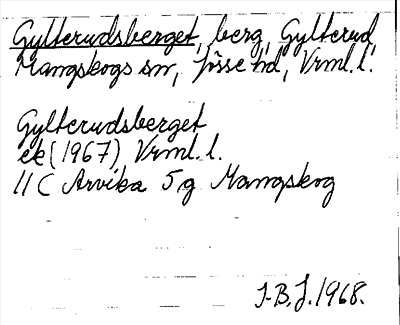 Gylterudsberget, berg, Gylterud,
Mangskogs sn, Jösse hd, Vrml. l.
Gylterudsberget
ek (1967) Vrml. l.
11 C Arvika 5 g Mangskog
I-B.J. 1968.